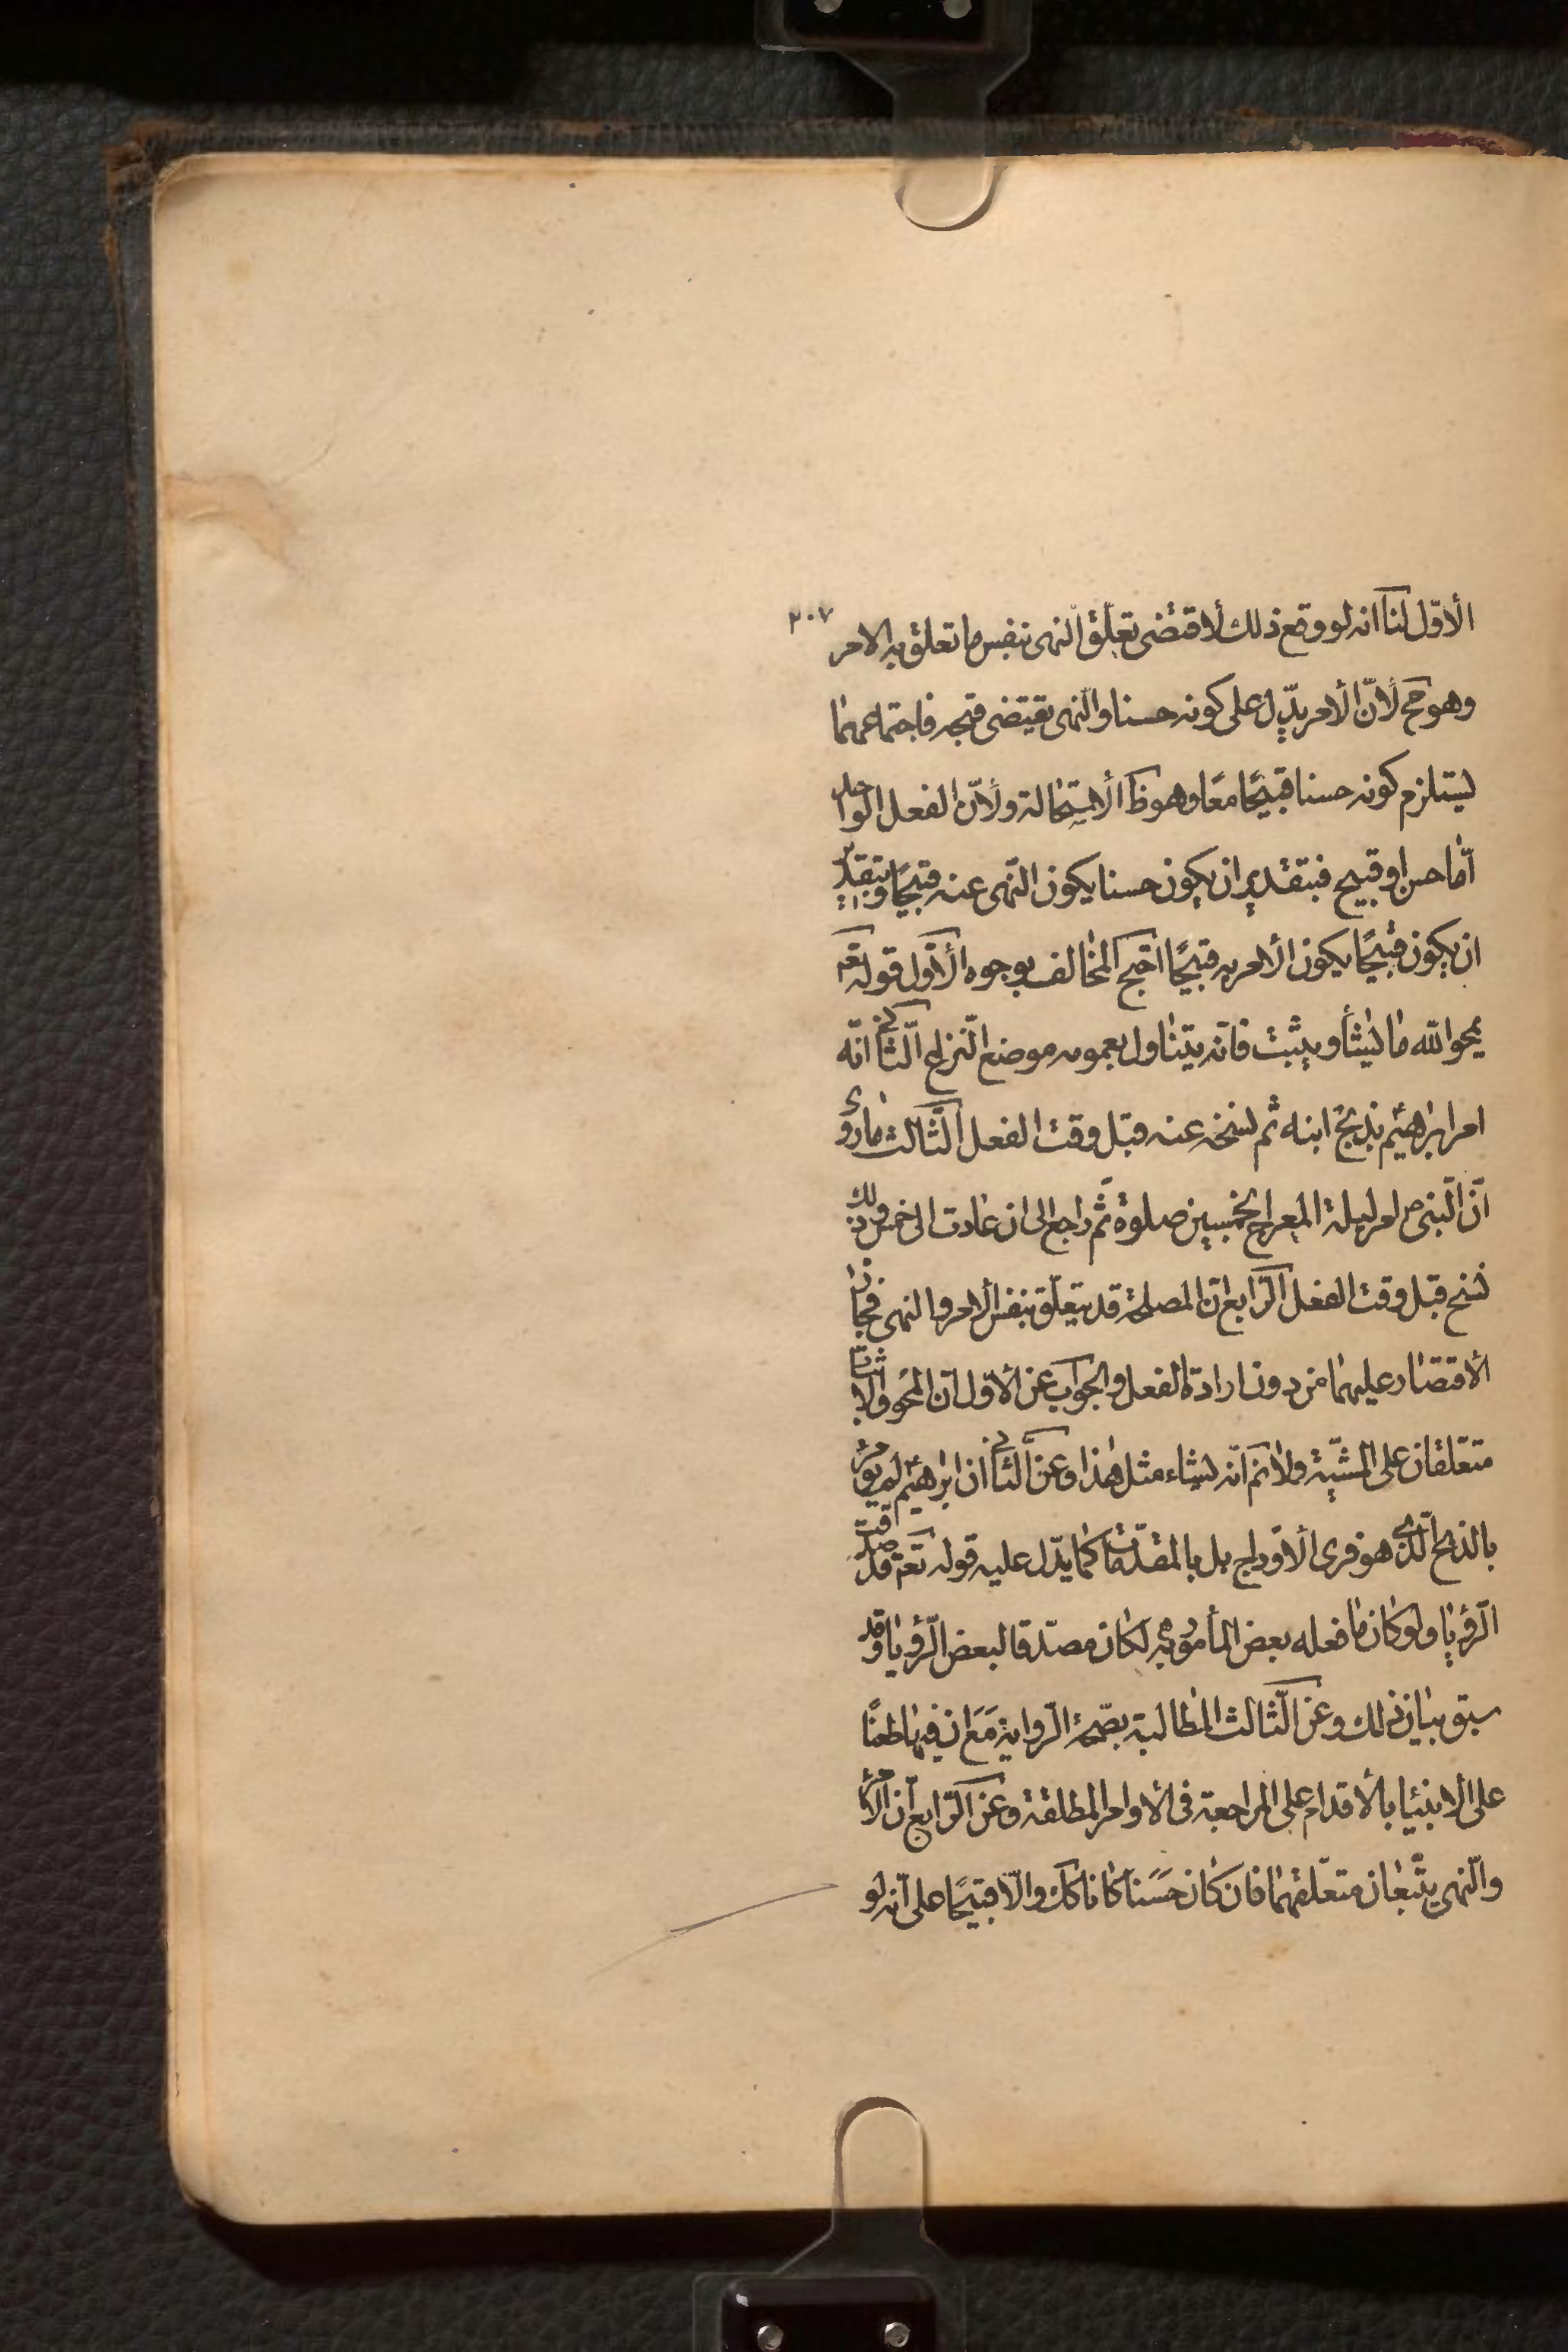 ٢٠٧
الأوّل لنا انه لو وقع ذلك لأقتضى تعلّق النهى بنفس ما تعلق به الامر
وهو مح لأنّ الأمر يدّل على كونه حسنا والنّهى يقتضى قبحه فاجتماعهما
يستلزم كونه حسنا قبيحًا معًا وهو ظ الأستحالة ولأنّ الفعل الواحد
امّا حسن او قبيح فبتقدير ان يكون حسنا يكون النّهى عنه قبيحًا وبتقدير
ان يكون قبيحًا يكون الأمر به قبيحًا احتج المخالف بوجوه الأوّل قوله تعم
يمحو الله ما يشأ ويثبت فانّه يتناول بعمومه موضع النزاع الثانى انّه
امر ابراهيم بذبح ابنه ثم نسخه عنه قبل وقت الفعل الثّالث ما روى
انّ النّبى ص امر ليلة المعراج بخمسين صلوة ثمّ راجع الى ان عادت الى خمس وذلك
نسخ قبل وقت الفعل الرّابع انّ المصلحة قد يتعلّق بنفس الأمر والنهى فجاز
الأقتصار عليهما من دون ارادة الفعل والجواب عن الأوّل انّ المحو والاثبات
متعلقان على المشيّة ولانم انّه يشاء مثل هذا وعن الثانى ان ابراهيم لم يؤمر
بالذبح الّذى هو فرى الأوداج بل بالمقدّمات كما يدّل عليه قوله تعم قد صدقت
الرّؤيا ولو كان ما فعله بعض المأمور به لكان مصدّقا لبعض الرّؤيا وقد
سبق بيان ذلك وعن الثّالث المطالبة بصحّة الرّواية مع ان فيها طعنًا
على الانبيا بالأقدام على المراجعة فى الأوامر المطلقة وعن الرّابع انّ الأمر
والنّهى يتّبعان متعلّقهما فان كان حسنا كانا كك والّا قبيحًا على انه لو